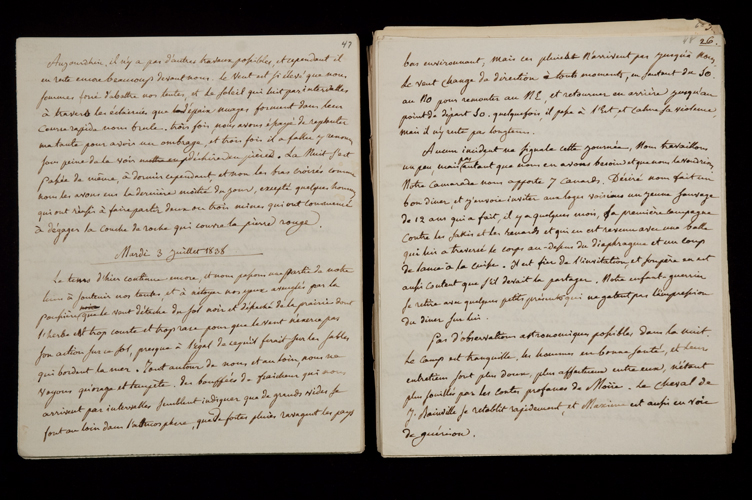 47
Aujourdhui, il n'y a pas d'autres travaux possibles, et cependant il
en reste encore beaucoup devant nous. Le vent est si élevé que nous
sommes forcé d'abattre nos tentes et le soleil qui luit par intervalles
à travers les éclaircies que d'épais nuages forment dans leur
course rapide nous brule. trois fois nous avons éssayé de rajuster
ma tente pour avoir un ombrage, et trois fois il a fallu y renoncer
sous peine de la voir déchirée en pièces. La Nuit s'est
passée de même, à dormir cependant et non les bras croisés comme
nous les avons eus la dernière moitié du jour, excepté quelques hommes
qui ont réussi à faire partir deux ou trois mines qui ont commencé
à dégager la couche de roche qui couvre la pierre rouge.
Mardi 3 Juillet 1838
Le tems d'hier continue encore, et nous passons une partie de notre
tems à soutenir nos tentes, et à nétoyer nos yeux aveuglés par la
poussière que le vent détache du sol noir et déséché de la prairie dont
l'herbe est trop courte et trop rase pour que le vent n'éxerce pas
son action sur ce sol, presque à l'égal de ce qu'il ferait sur les sables
qui bordent la mer. Tout autour de nous et au loin nous ne
voyons qu'orage et tempête. des bouffées de fraicheur qui nous
arrivent par intervalles semblent indiquer que de grands vides se
font au loin dans l'atmosphère, que de fortes pluies ravagent les pays
26.
bas environnant, mais ces pluies n'arrivent pas jusqu'à nous.
Le vent change de direction à touts moments, en sautant du SO.
au NO pour remonter au NE, et retourner en arrière jusqu'au
point de départ SO. quelquefois, il passe à l'Est et calme sa violence,
mais il n'y reste pas longtems.
Aucun incident ne signala cette journée. Nous travaillons
un peu mais pas autant que nous en avons besoin et que nous le voudrions.
Notre camarade nous apporte 7 canards. Désiré nous fait un
bon diner, et j'envoie inviter aux loges voisines un jeune sauvage
de 12 ans qui a fait, il y a quelques mois, sa première campagne
contre les Sakis et les renards et qui en est revenu avec une balle
qui lui a traversé le corps au-dessus du diaphragme et un coup
de lance à la cuisse. Il est fier de l'invitation, et son père en est
aussi content que s'il devait la partager. Notre enfant guerrier
se retire avec quelques petits présents qui ne gatent pas l'impression
du diner sur lui.
Pas d'observations astronomiques possibles dans la nuit.
Le camp est tranquille, les hommes en bonne santé, et leur
entretien sont plus doux, plus affectueux entre eux, n'étant
plus souillés par les contes profanes de Moïse. Le cheval de
J. Rainville se rétablit rapidement, et Maxime est aussi en voie
de guérison.